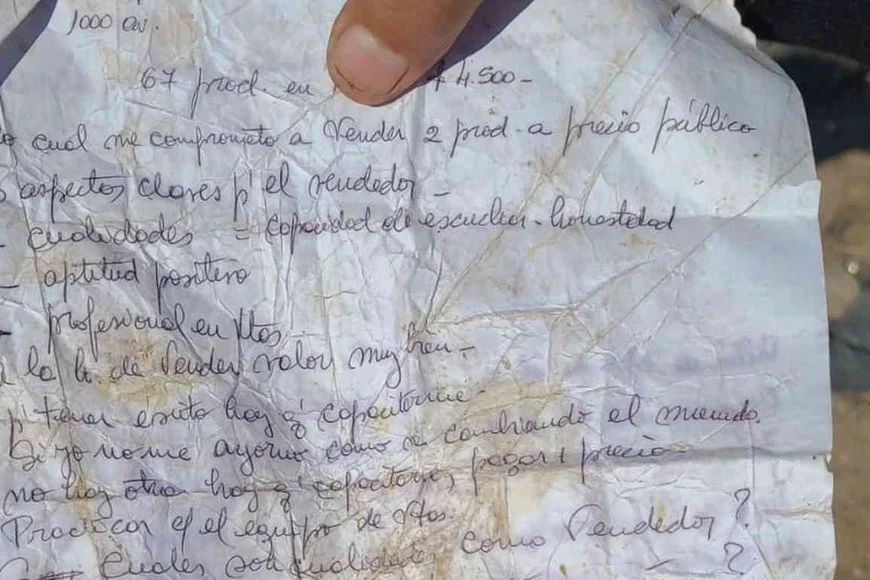 1000 av.
67 prod. en $ 4.500-
lo cual me comprometo a Vender 2 prod. a precio público
s aspectos claves p' el vendedor -
- cualidades = capacidad de escuchar - honestidad
- aptitud positiva
- profesional en Vtas
a la h. de Vender valor muy bien -
p' tener éxito hay q' capacitarse -
Si yo no me ayorno como va cambiando el mundo.
no hay otra hay q' capacitarse, pagar 1 precio -
Practicar c/ el equipo de Vtas.
Cuales son cualidades como Vendedor?
?